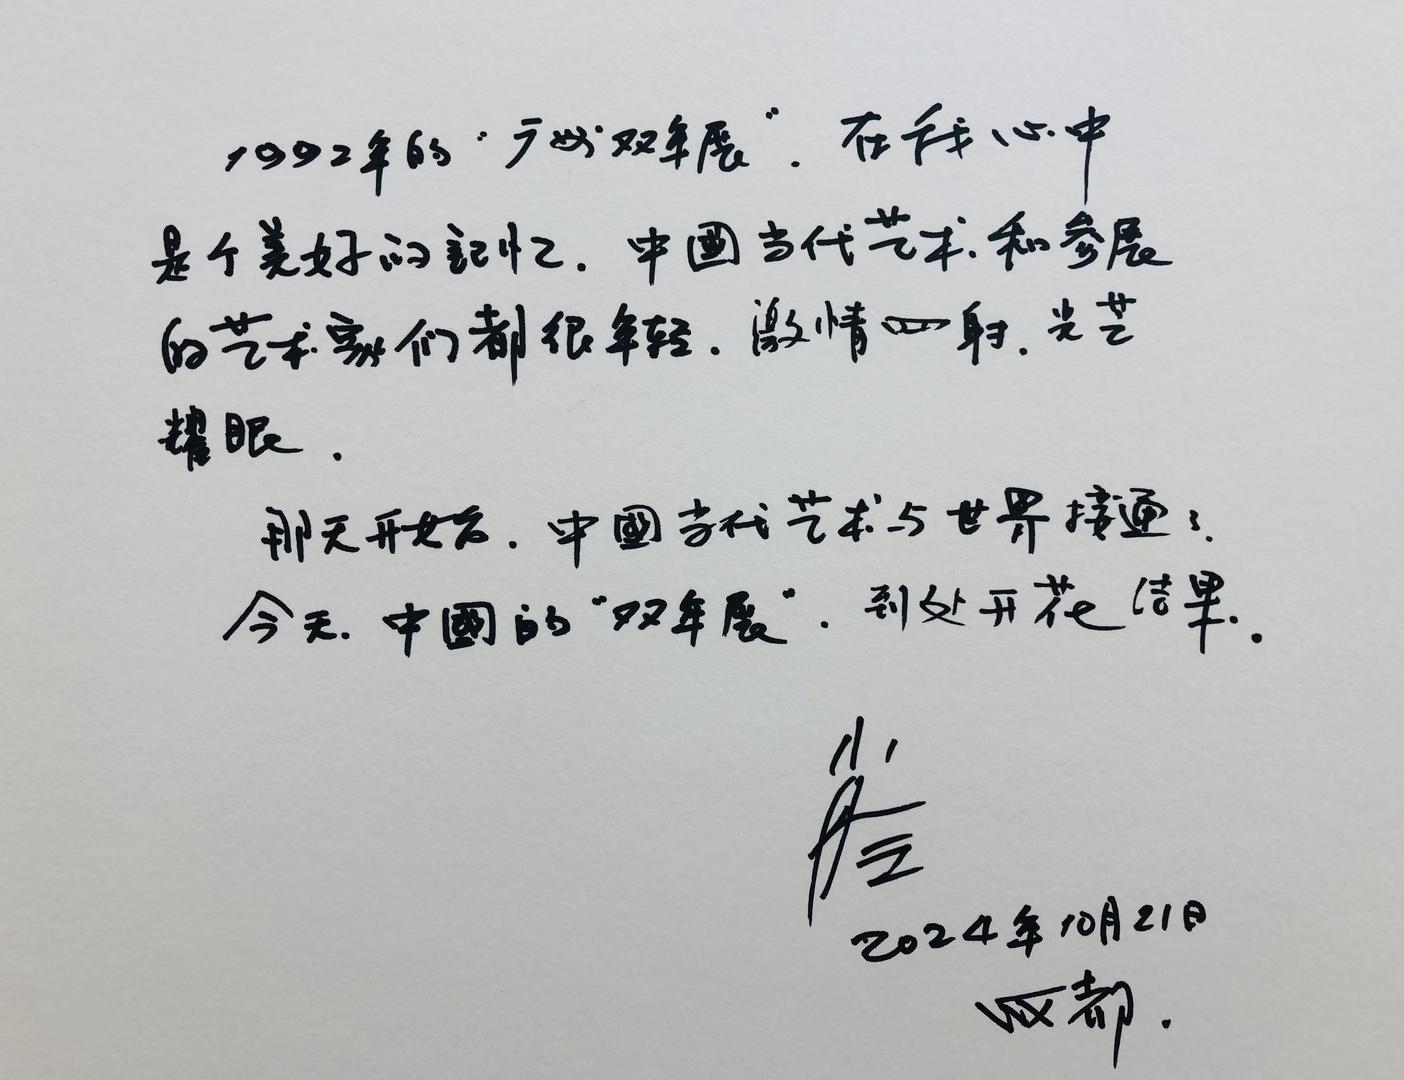 1992年的“广州双年展”.在我心中
是个美好的記忆.中國当代艺术.和参展
的艺术家们都很年轻.激情四射.光艺
耀眼.
那天开始.中國当代艺术与世界接通;
今天.中國的“双年展”.到处开花结果.
2024年10月21日
成都.